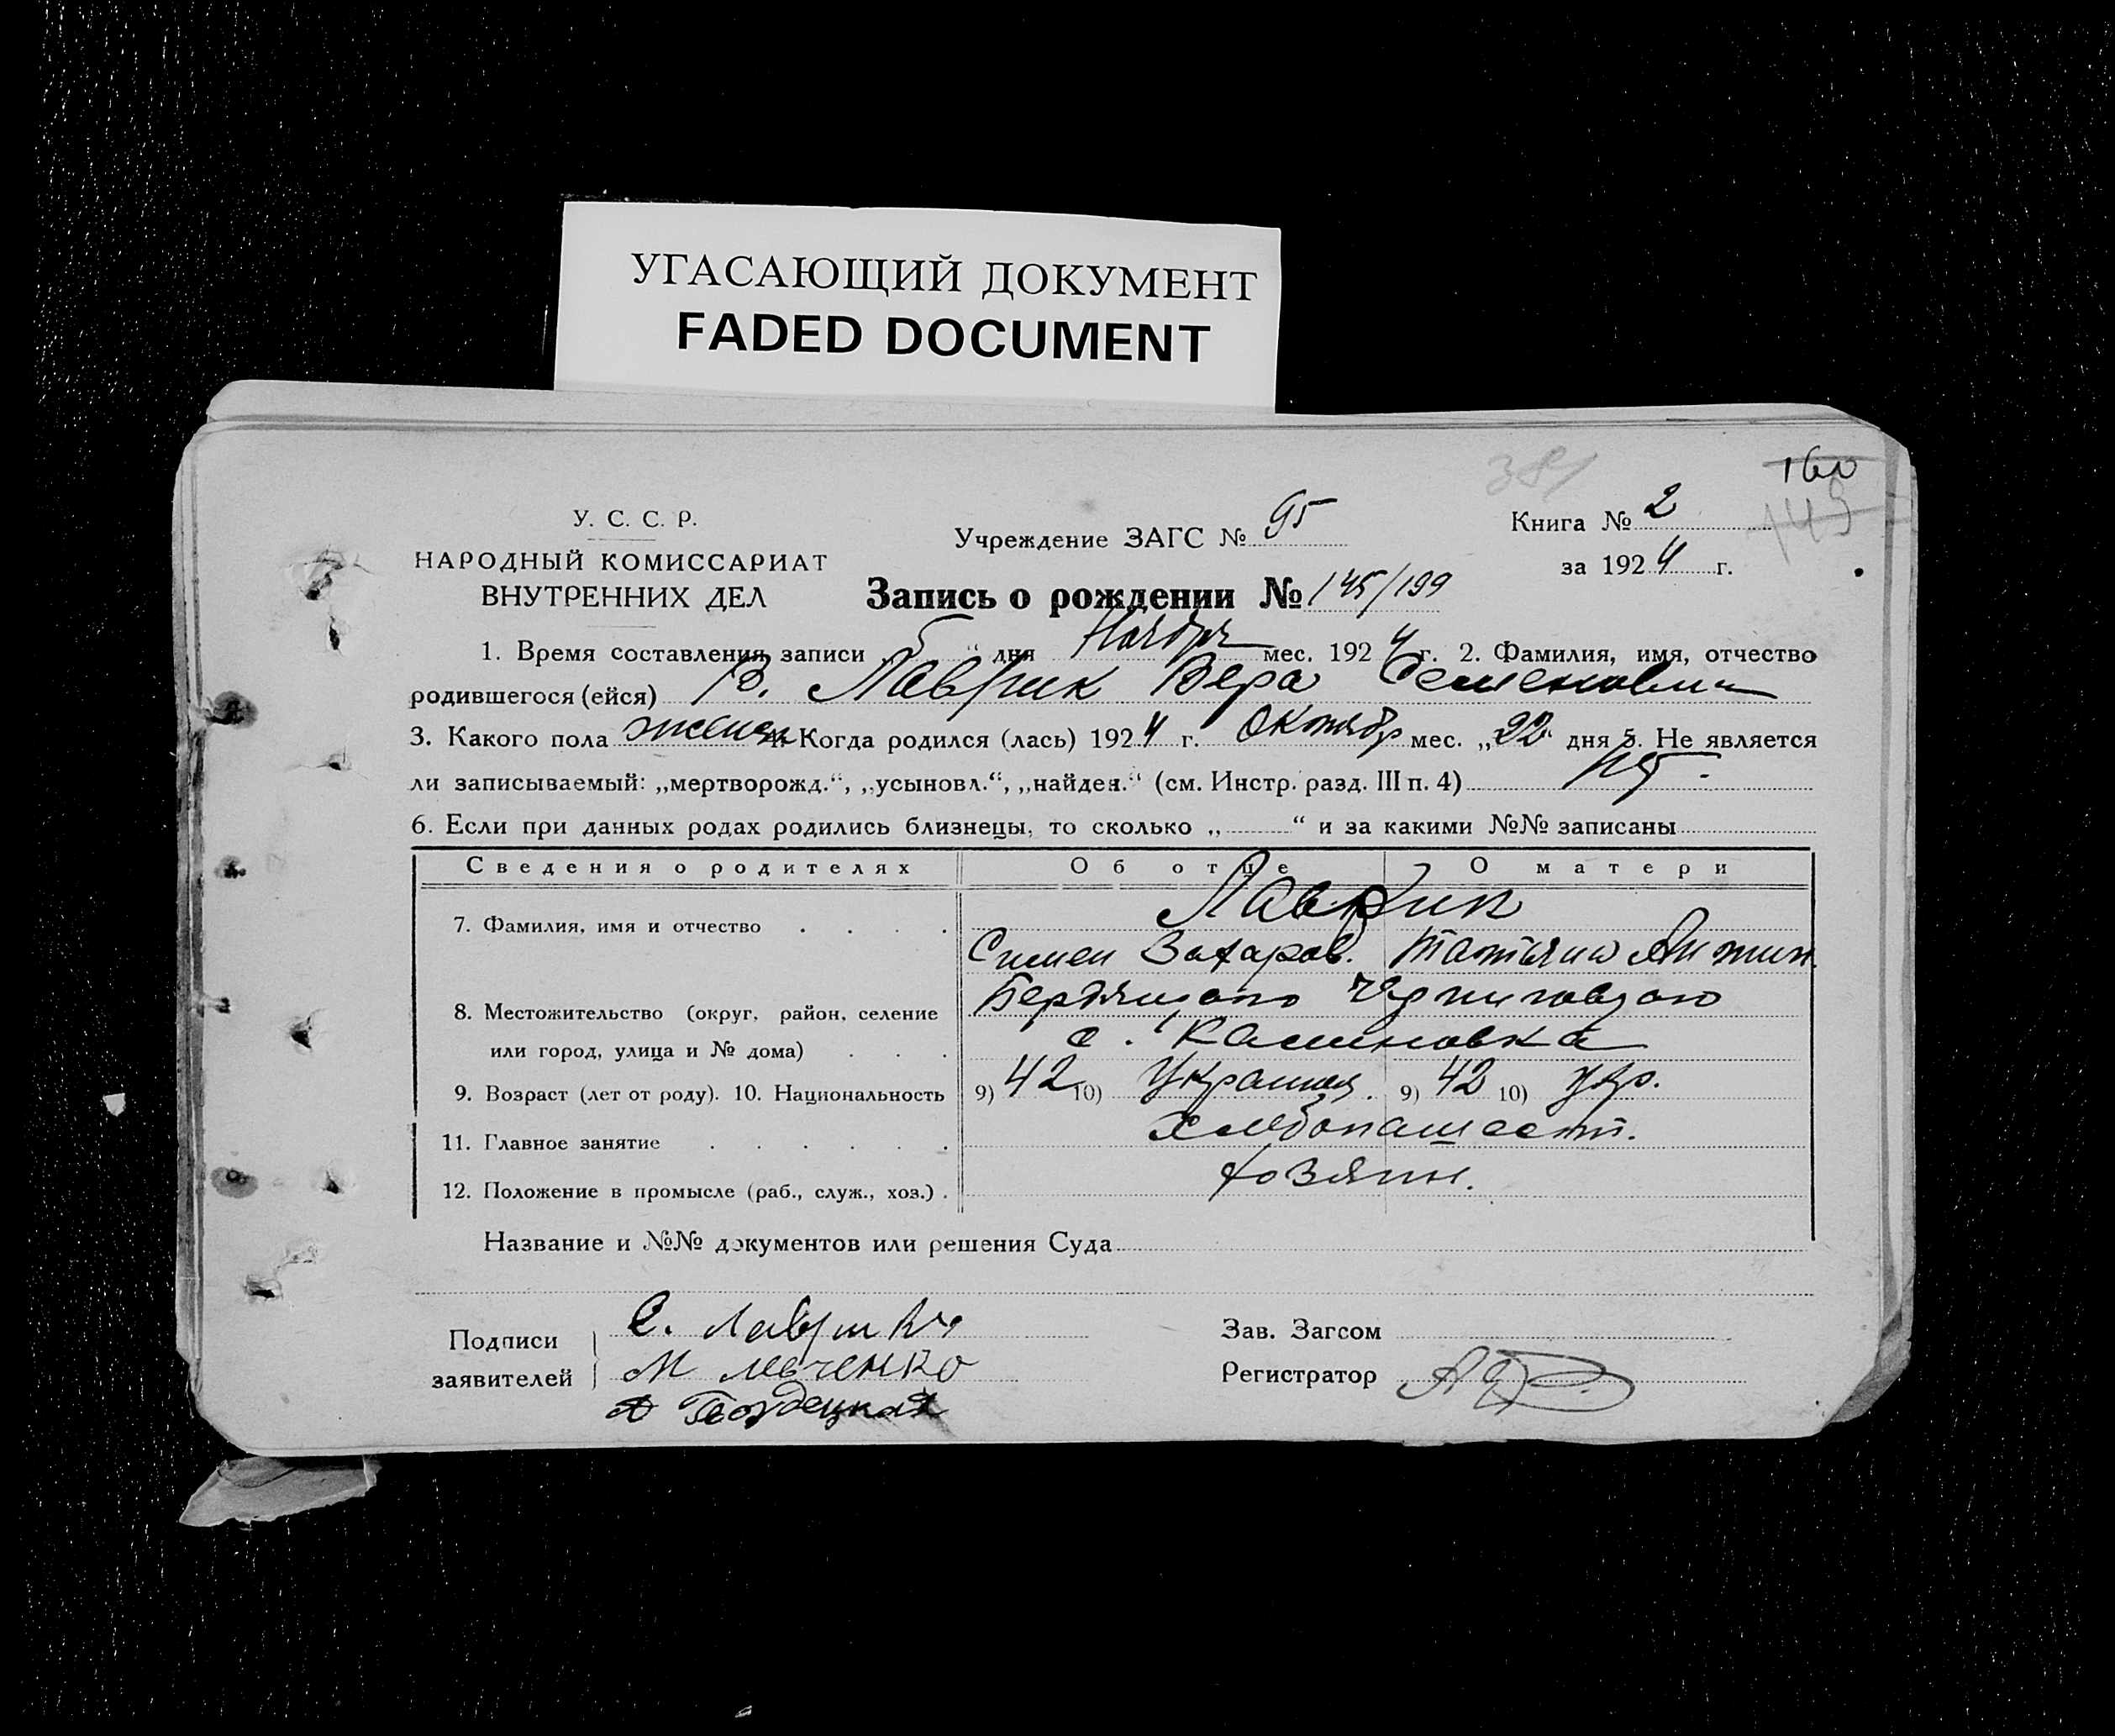 УГАСАЮЩИЙ ДОКУМЕНТ
FADED DOCUMENT
381
160
145
У. С. С. Р.
НАРОДНЫЙ КОМИССАРИАТ
ВНУТРЕННИХ ДЕЛ
Учреждение ЗАГС № 95
Книга № 2
за 1924 г.
Запись о рождении № 145/199
1. Время составления записи „ “ дня Ноября мес. 1924 г. 2. Фамилия, имя, отчество
родившегося (ейся) В. Лаврик Вера Семеновна
3. Какого пола женск 4. Когда родился (лась) 1924 г. Октябр мес. „22“ дня 5. Не является
ли записываемый: „мертворожд.“, „усыновл.“, „найден.“ (см. Инстр. разд. III п. 4) нет.
6. Если при данных родах родились близнецы, то сколько „ “ и за какими №№ записаны
Сведения о родителях Об отце О матери
7. Фамилия, имя и отчество Лаврик
Симен Захаров. Татьяна
8. Местожительство (округ, район, селение
или город, улица и № дома)
Бердянского Черниговского
с. Калиновка
9. Возраст (лет от роду). 10. Национальность 9) 42 10) Украинец. 9) 42 10) укр.
11. Главное занятие хлебопашест.
12. Положение в промысле (раб., служ., хоз.) хозяин.
Название и №№ документов или решения Суда
Подписи
заявителей
С. Лаврик
М
Зав. Загсом
Регистратор